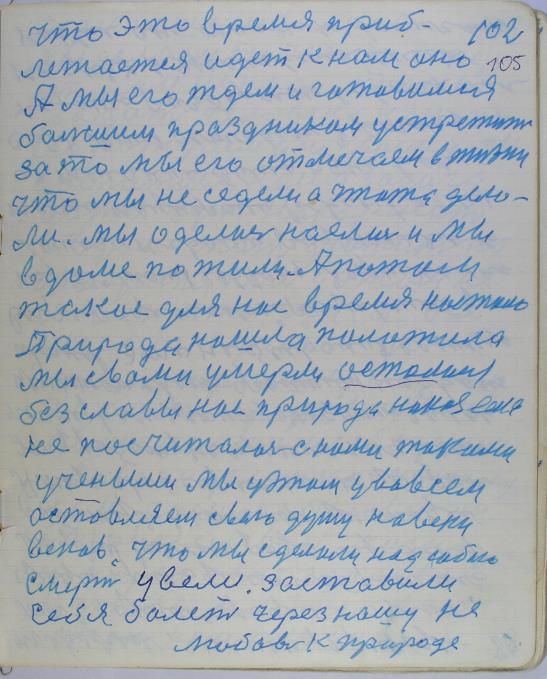 что это время приб- 102
лежается идет к нам оно 105
А мы его ждем и готовимся
большим праздником устретить
за то мы его отмечаем в жизни
что мы не седели а чтота дело-
ли. мы оделися наелися и мы
в доме пожили. А потом
такое для нас время настало
Природа нашла положила
мы свами умерли остались
без славы нас природа наказала
не посчиталася с нами такими
учеными мы у этом у вовсем
оставляем свою душу навеки
веков что мы сделали над собою
смерть увели. заставили
себя болеть через нашу не
любовь к природе